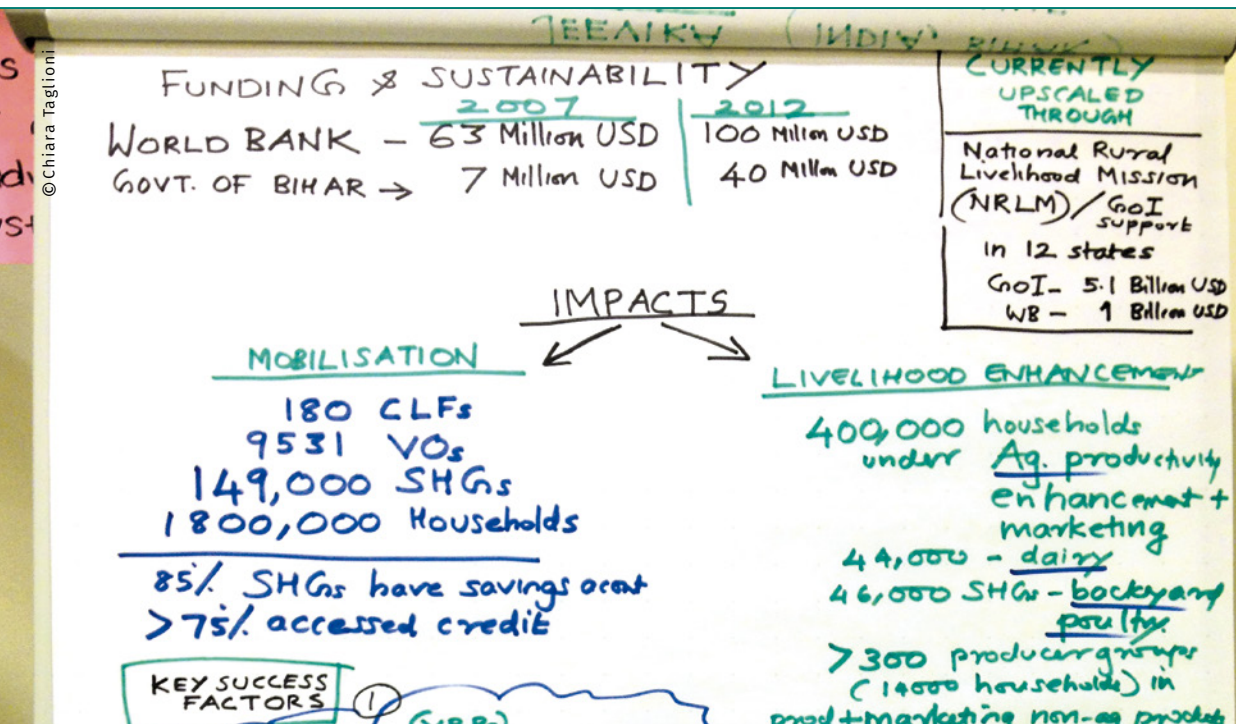 JEEVIKA (INDIA, BIHAR)
© Chiara Taglioni
FUNDING & SUSTAINABILITY
2007 2012
WORLD BANK – 63 Million USD 100 Million USD
GOVT. OF BIHAR → 7 Million USD 40 Million USD
CURRENTLY
UPSCALED
THROUGH
National Rural
Livelihood Mission
(NRLM)/GoI
support
in 12 states
GoI – 5.1 Billion USD
WB – 1 Billion USD
IMPACTS
MOBILISATION
180 CLFs
9531 VOs
149,000 SHGs
1800,000 Households
85% SHGs have savings acont
>75% accessed credit
LIVELIHOOD ENHANCEMENT
400,000 households
under Ag. productivity
enhancement +
marketing
44,000 – dairy
46,000 SHGs – backyard
poultry.
>300 producer groups
(14000 households) in
prod + marketing non-ag products
KEY SUCCESS
FACTORS
1